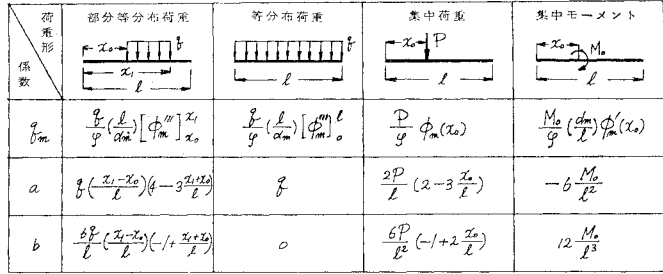 荷重形 部分等分布荷重 等分布荷重 集中荷重 集中モーメント
係数
x₀ q q x₀ P x₀ M₀
x₁
l l l l
q_m q/φ (l/α_m) [φ_m''']_{x₀}^{x₁} q/φ (l/α_m) [φ_m''']_0^l P/φ φ_m(x₀) M₀/φ (α_m/l) φ_m'(x₀)
a q((x₁-x₀)/l)(4-3(x₁+x₀)/l) q 2P/l (2-3 x₀/l) -6 M₀/l²
b 6q/l ((x₁-x₀)/l)(-1+(x₁+x₀)/l) 0 6P/l² (-1+2 x₀/l) 12 M₀/l³